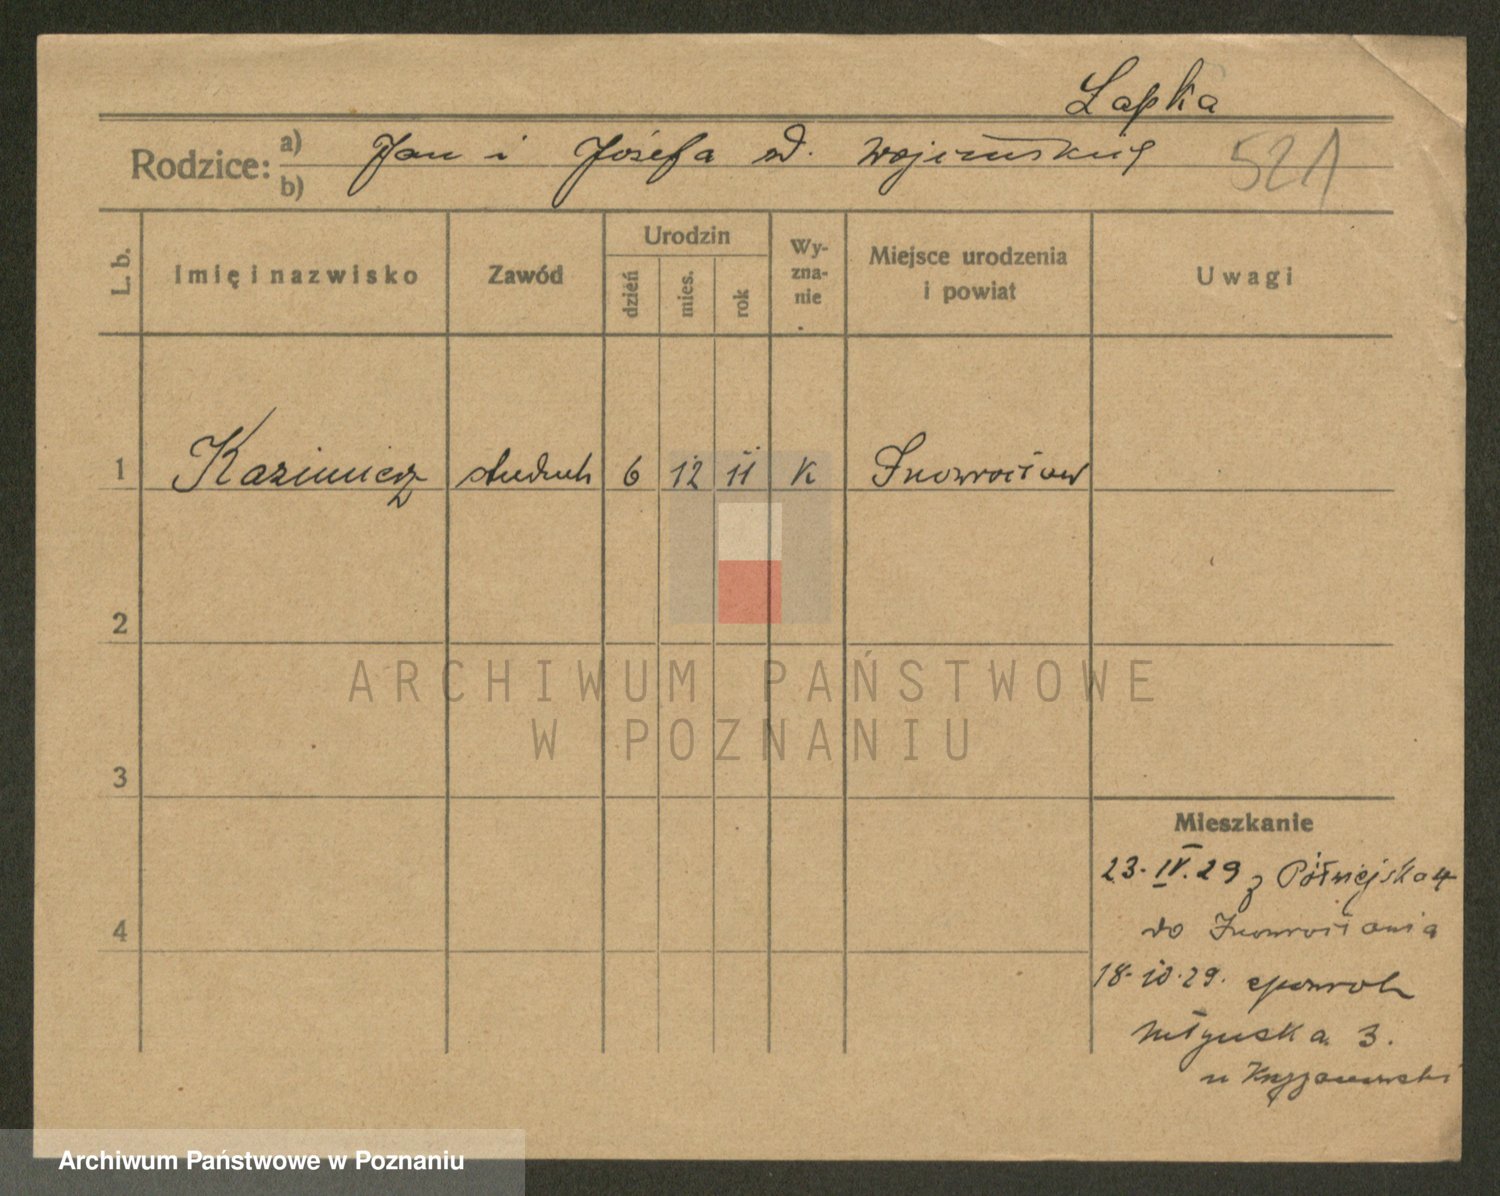 Łapka
Rodzice: a) Jan i Józefa zd.
b)
521
L. b.
Imię i nazwisko
Zawód
Urodzin
dzień
mies.
rok
Wy-
zna-
nie
Miejsce urodzenia
i powiat
Uwagi
1 Kazimierz student 6 12 11 K Inowrocław
2
3
4
Mieszkanie
23. IV. 29 z Półwiejska 4
do Inowrocławia
18. 10. 29. spowrot
Młyńska 3.
u Krzyżanowski
ARCHIWUM PAŃSTWOWE
W POZNANIU
Archiwum Państwowe w Poznaniu